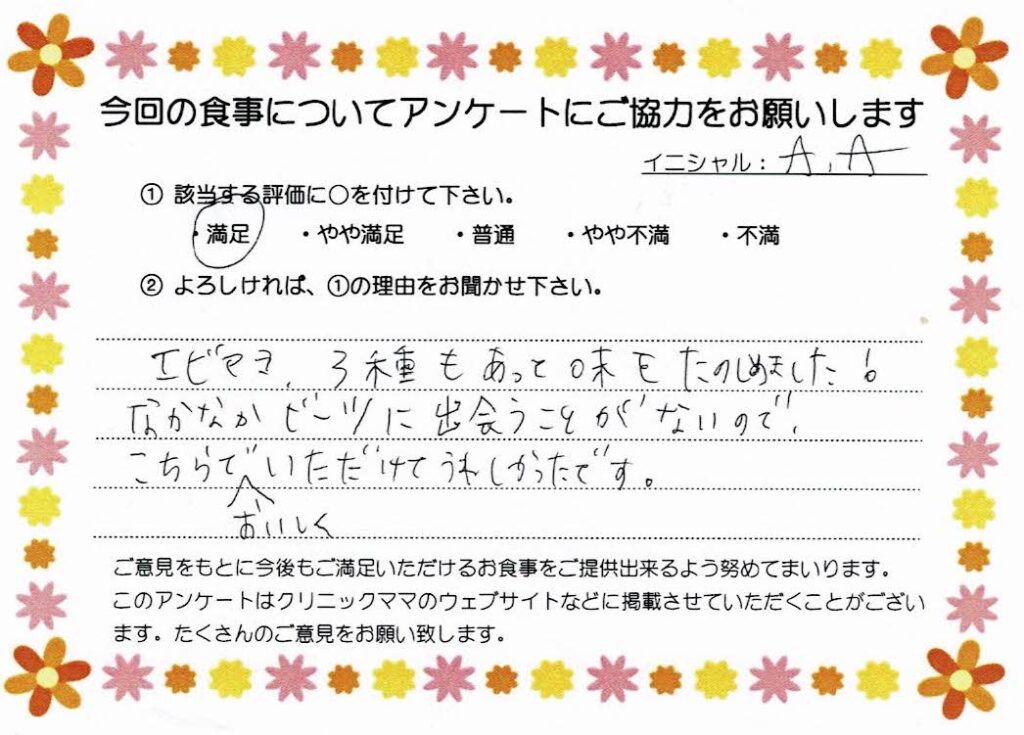 今回の食事についてアンケートにご協力をお願いします
イニシャル：A.A
① 該当する評価に○を付けて下さい。
・満足 ・やや満足 ・普通 ・やや不満 ・不満
② よろしければ、①の理由をお聞かせ下さい。
エビマヨ、3種もあって味をたのしめました！
なかなかビーツに出会うことがないので、
こちらでいただけてうれしかったです。
おいしく
ご意見をもとに今後もご満足いただけるお食事をご提供出来るよう努めてまいります。
このアンケートはクリニックママのウェブサイトなどに掲載させていただくことがござい
ます。たくさんのご意見をお願い致します。